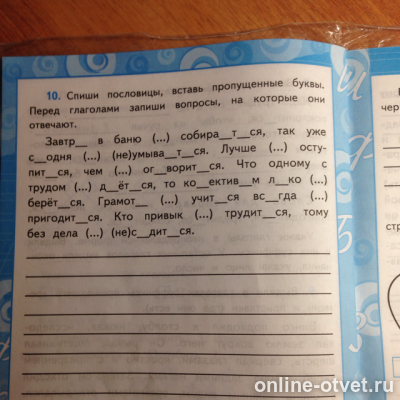 10. Спиши пословицы, вставь пропущенные буквы.
Перед глаголами запиши вопросы, на которые они
отвечают.
Завтр__ в баню (...) собира__т__ся, так уже
с__одня (...) (не)умыва__т__ся. Лучше (...) осту-
пит__ся, чем (...) ог__ворит__ся. Что одному с
трудом (...) д__ёт__ся, то ко__ектив__м л__ко (...)
берёт__ся. Грамот__ (...) учит__ся вс__гда (...)
пригодит__ся. Кто привык (...) трудит__ся, тому
без дела (...) (не)с__дит__ся.
чер
стр
online-otvet.ru